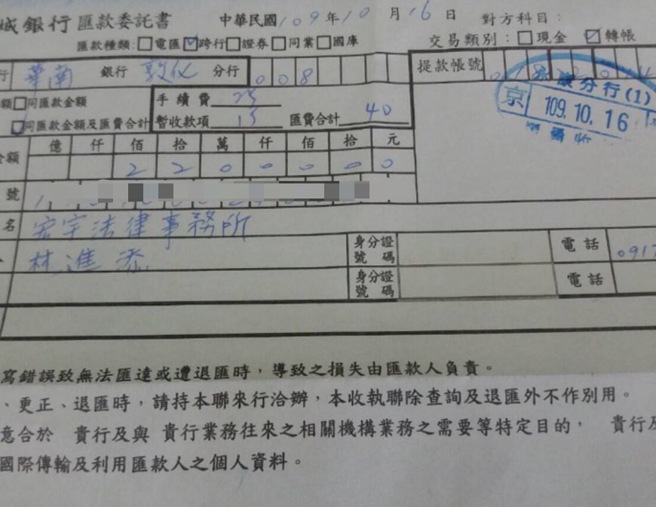 城銀行匯款委託書 中華民國109年10月16日 對方科目：
匯款種類：□電匯☑跨行□證券□同業□國庫 交易類別：□現金☑轉帳
行 華南 銀行 敦化 分行 008 提款帳號
額□同匯款金額 手續費 25
☑同匯款金額及匯費合計 暫收款項 15 匯費合計 40
分行(1)
京 109.10.16
億 仟 佰 拾 萬 仟 佰 拾 元
金額 2 2 0 0 0 0 0
號
名 宏宇法律事務所
身分證號碼 電話 091
林進
身分證號碼 電話
寫錯誤致無法匯達或遭退匯時，導致之損失由匯款人負責。
、更正、退匯時，請持本聯來行洽辦，本收執聯除查詢及退匯外不作別用。
意合於 貴行及與 貴行業務往來之相關機構業務之需要等特定目的， 貴行及
國際傳輸及利用匯款人之個人資料。